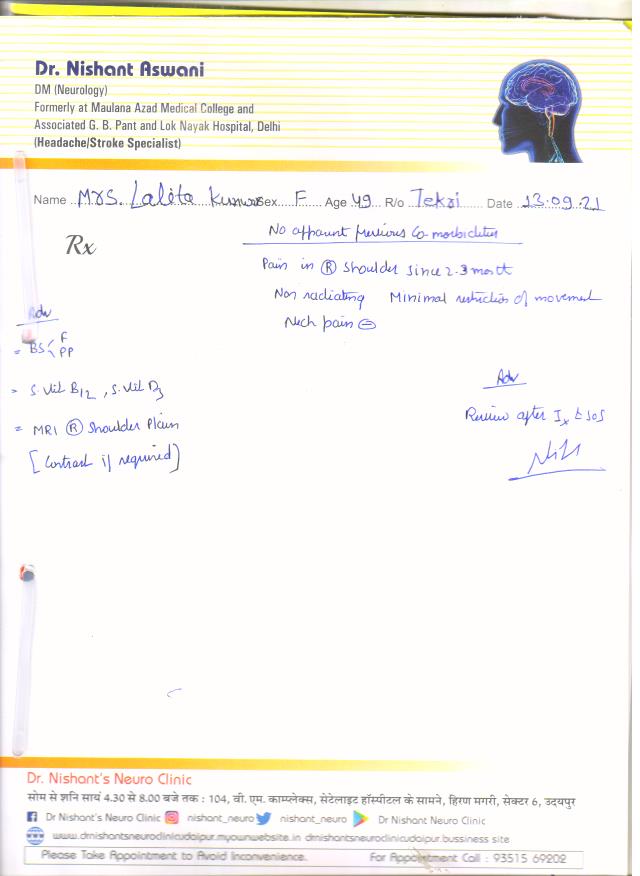 Dr. Nishant Aswani
DM (Neurology)
Formerly at Maulana Azad Medical College and
Associated G. B. Pant and Lok Nayak Hospital, Delhi
(Headache/Stroke Specialist)
Name Mrs. Lalita Kumar Sex F Age 49 R/o Tekri Date 13.09.21
Rx
No apparent previous Co-morbidities
Pain in (R) Shoulder since 2-3 month
Non radiating Minimal restriction of movement
Neck pain ⊖
Adv
= BS < F PP
= S. Vit B12, S. Vit D3
= MRI (R) Shoulder Plain
[Contrast if required]
Adv
Review after Ix & SOS
Dr. Nishant's Neuro Clinic
सोम से शनि सायं 4.30 से 8.00 बजे तक : 104, वी. एम. काम्प्लेक्स, सेटेलाइट हॉस्पीटल के सामने, हिरण मगरी, सेक्टर 6, उदयपुर
Dr Nishant's Neuro Clinic nishant_neuro nishant_neuro Dr Nishant Neuro Clinic
www.drnishantsneuroclinicudaipur.myownwebsite.in drnishantsneuroclinicudaipur.bussiness site
Please Take Appointment to Avoid Inconvenience. For Appointment Call : 93515 69202